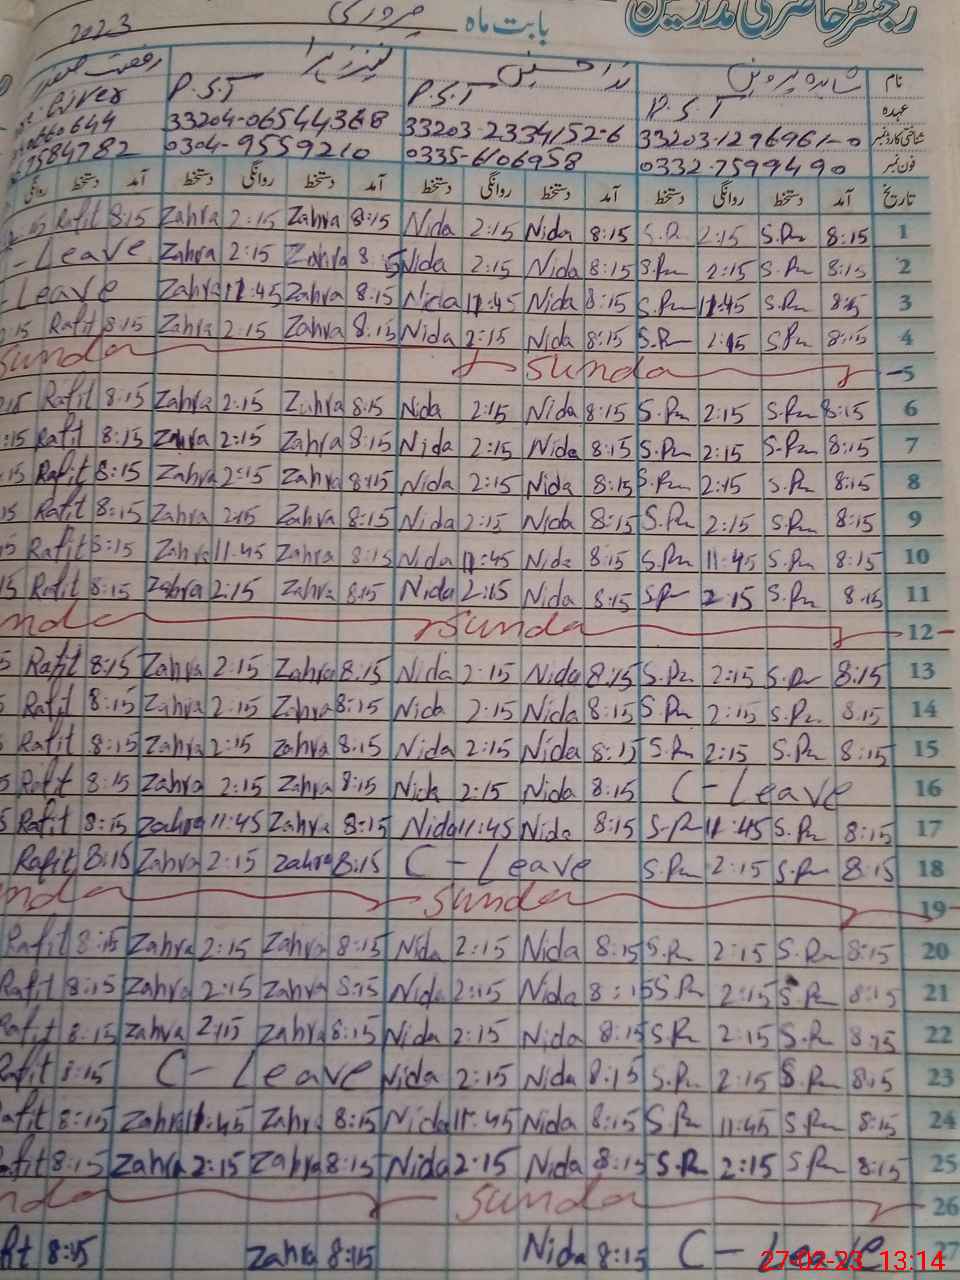 رجسٹر حاضری مدرسین
بابت ماہ فروری 2023
نام شاہدہ پروین ندا حسین کنیز زہرا رفعت
عہدہ P.S.T P.S.T P.S.T
شناختی کارڈ نمبر 33203-1296961-0 33203-2334152-6 33204-0654436-8
فون نمبر 0332-7599490 0335-6106958 0304-9559210 7584782
تاریخ آمد دستخط روانگی دستخط آمد دستخط روانگی دستخط آمد دستخط روانگی دستخط آمد دستخط روانگی
15 Rafit 8:15 Zahra 2:15 Zahra 8:15 Nida 2:15 Nida 8:15 S.Pn 2:15 S.Pn 8:15 1
-Leave Zahra 2:15 Zahra 8:15 Nida 2:15 Nida 8:15 S.Pn 2:15 S.Pn 8:15 2
-Leave Zahra 11:45 Zahra 8:15 Nida 11:45 Nida 8:15 S.Pn 11:45 S.Pn 8:15 3
2:15 Rafit 8:15 Zahra 2:15 Zahra 8:15 Nida 2:15 Nida 8:15 S.Pn 2:15 S.Pn 8:15 4
Sunda Sunda 5
:15 Rafit 8:15 Zahra 2:15 Zahra 8:15 Nida 2:15 Nida 8:15 S.Pn 2:15 S.Pn 8:15 6
:15 Rafit 8:15 Zahra 2:15 Zahra 8:15 Nida 2:15 Nida 8:15 S.Pn 2:15 S.Pn 8:15 7
15 Rafit 8:15 Zahra 2:15 Zahra 8:15 Nida 2:15 Nida 8:15 S.Pn 2:15 S.Pn 8:15 8
15 Rafit 8:15 Zahra 2:15 Zahra 8:15 Nida 2:15 Nida 8:15 S.Pn 2:15 S.Pn 8:15 9
5 Rafit 8:15 Zahra 11:45 Zahra 8:15 Nida 11:45 Nida 8:15 S.Pn 11:45 S.Pn 8:15 10
15 Rafit 8:15 Zahra 2:15 Zahra 8:15 Nida 2:15 Nida 8:15 S.Pn 2:15 S.Pn 8:15 11
nda Sunda 12
5 Rafit 8:15 Zahra 2:15 Zahra 8:15 Nida 2:15 Nida 8:15 S.Pn 2:15 S.Pn 8:15 13
5 Rafit 8:15 Zahra 2:15 Zahra 8:15 Nida 2:15 Nida 8:15 S.Pn 2:15 S.Pn 8:15 14
Rafit 8:15 Zahra 2:15 Zahra 8:15 Nida 2:15 Nida 8:15 S.Pn 2:15 S.Pn 8:15 15
5 Rafit 8:15 Zahra 2:15 Zahra 8:15 Nida 2:15 Nida 8:15 C-Leave 16
5 Rafit 8:15 Zahra 11:45 Zahra 8:15 Nida 11:45 Nida 8:15 S.Pn 11:45 S.Pn 8:15 17
Rafit 8:15 Zahra 2:15 Zahra 8:15 C-Leave S.Pn 2:15 S.Pn 8:15 18
nda Sunda 19
Rafit 8:15 Zahra 2:15 Zahra 8:15 Nida 2:15 Nida 8:15 S.Pn 2:15 S.Pn 8:15 20
Rafit 8:15 Zahra 2:15 Zahra 8:15 Nida 2:15 Nida 8:15 S.Pn 2:15 S.Pn 8:15 21
Rafit 8:15 Zahra 2:15 Zahra 8:15 Nida 2:15 Nida 8:15 S.Pn 2:15 S.Pn 8:15 22
Rafit 8:15 C-Leave Nida 2:15 Nida 8:15 S.Pn 2:15 S.Pn 8:15 23
afit 8:15 Zahra 11:45 Zahra 8:15 Nida 11:45 Nida 8:15 S.Pn 11:45 S.Pn 8:15 24
afit 8:15 Zahra 2:15 Zahra 8:15 Nida 2:15 Nida 8:15 S.Pn 2:15 S.Pn 8:15 25
nda Sunda 26
fit 8:15 Zahra 8:15 Nida 8:15 C-Leave 27
27-02-23 13:14